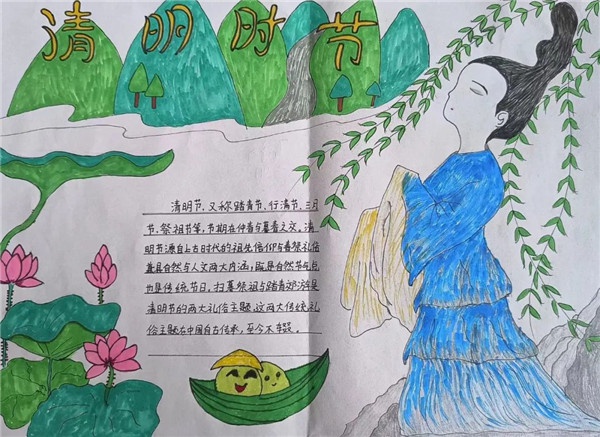 清明时节
清明节，又称踏青节、行清节、三月
节、祭祖节等，节期在仲春与暮春之交。清
明节源自上古时代的祖先信仰与春祭礼俗
兼具自然与人文两大内涵，既是自然节气点
也是传统节日。扫墓祭祖与踏青郊游是
清明节的两大礼俗主题，这两大传统礼
俗主题在中国自古传承，至今不辍。